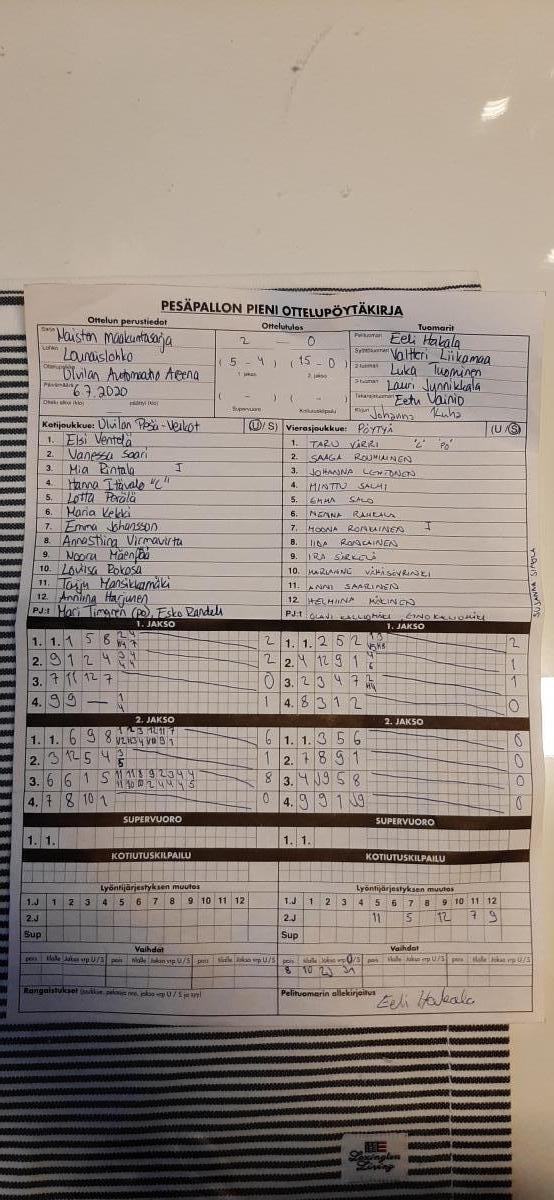 PESÄPALLON PIENI OTTELUPÖYTÄKIRJA
Ottelun perustiedot Ottelutulos Tuomarit
Sarja Naisten maakuntasarja 2 - 0 Pelituomari Eeli Hakala
Lohko Lounaislohko (5 - 4) (15 - 0) Syöttötuomari Valtteri Liikamaa
1. jakso 2. jakso 2-tuomari Luka Tuominen
Ottelupaikka Ulvilan Automaatio Areena 3-tuomari Lauri Junnikkala
Päivämäärä 6.7.2020 ( - ) ( - ) Takarajatuomari Eetu Vainio
Ottelu alkoi (klo) päättyi (klo) Supervuoro Kotiutuskilpailu Kirjuri Johanna Kuha
Kotijoukkue: Ulvilan Pesä-Veikot (U/S) Vierasjoukkue: PÖYTYÄ (U/S)
1. Elsi Ventelä 1. TARU VÄRRI "C" PO
2. Vanessa Saari 2. SAAGA ROUHIAINEN
3. Mia Rintala I 3. JOHANNA LEHTONEN
4. Hanna Itävalo "C" 4. MINTTU SALMI
5. Lotta Perälä 5. EMMA SALO
6. Maria Kekki 6. NENNA RAUKALA
7. Emma Johansson 7. MOONA RONKAINEN I
8. AnnaStiina Virmavirta 8. IIDA RONKAINEN
9. Noora Mäenpää 9. IRA SIRKELÄ
10. Lovisa Rokosa 10.
11. Taiju Mansikkamäki 11. ANNI SAARINEN
12. Anniina Harjunen 12. HELMIINA MÄKINEN
SUSANNA SIPOLA
PJ:t Mari Timgren (po), Esko Randell PJ:t OLAVI KALLIOMÄKI
1. JAKSO 1. JAKSO
1. 1. 1 5 8 2 1. 1. 2 5 2 2
2. 9 1 2 4 2 2. 4 12 9 1 1
3. 7 11 12 7 0 3. 2 3 4 7 1
4. 9 9 — 1 4. 8 3 1 2 0
2. JAKSO 2. JAKSO
1. 1. 6 9 8 6 1. 1. 3 5 6 0
2. 3 12 5 4 1 2. 7 8 9 1 0
3. 6 6 1 5 8 3. 4 J9 5 8 0
4. 7 8 10 1 0 4. 9 9 1 J9 0
SUPERVUORO SUPERVUORO
1. 1. 1. 1.
KOTIUTUSKILPAILU KOTIUTUSKILPAILU
Lyöntijärjestyksen muutos Lyöntijärjestyksen muutos
1.J 1 2 3 4 5 6 7 8 9 10 11 12 1.J 1 2 3 4 5 6 7 8 9 10 11 12
2.J 2.J 11 5 12 7 9
Sup Sup
Vaihdot Vaihdot
pois tilalle Jakso vrp U/S pois tilalle Jakso vrp U/S pois tilalle Jakso vrp U/S pois tilalle Jakso vrp U/S pois tilalle Jakso vrp U/S pois tilalle Jakso vrp U/S
8 10 2J
Rangaistukset (joukkue, pelaaja nro, jakso vrp U / S ja syy) Pelituomarin allekirjoitus Eeli Hakala
Lexington
Living